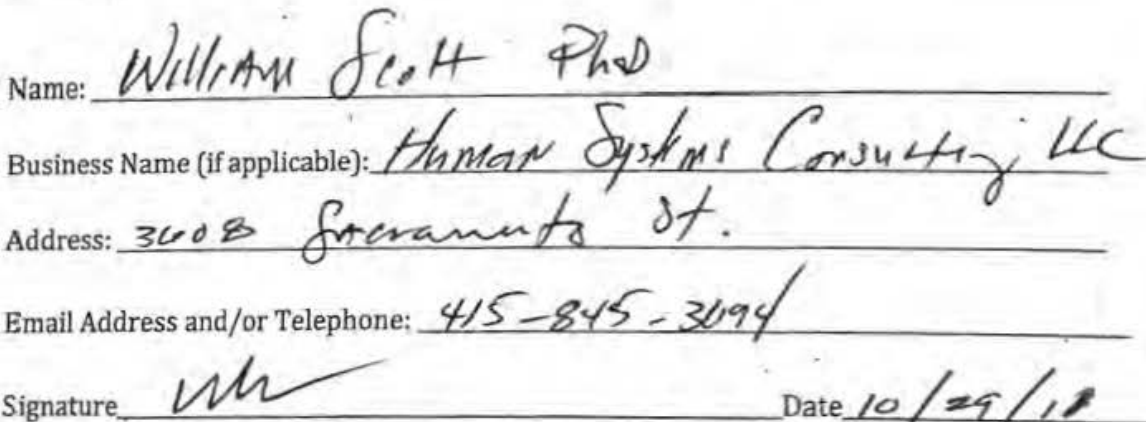 Name: William Scott PhD
Business Name (if applicable): Human Systems Consulting, LLC
Address: 3608 Sacramento St.
Email Address and/or Telephone: 415-845-3694
Signature Date 10/29/18